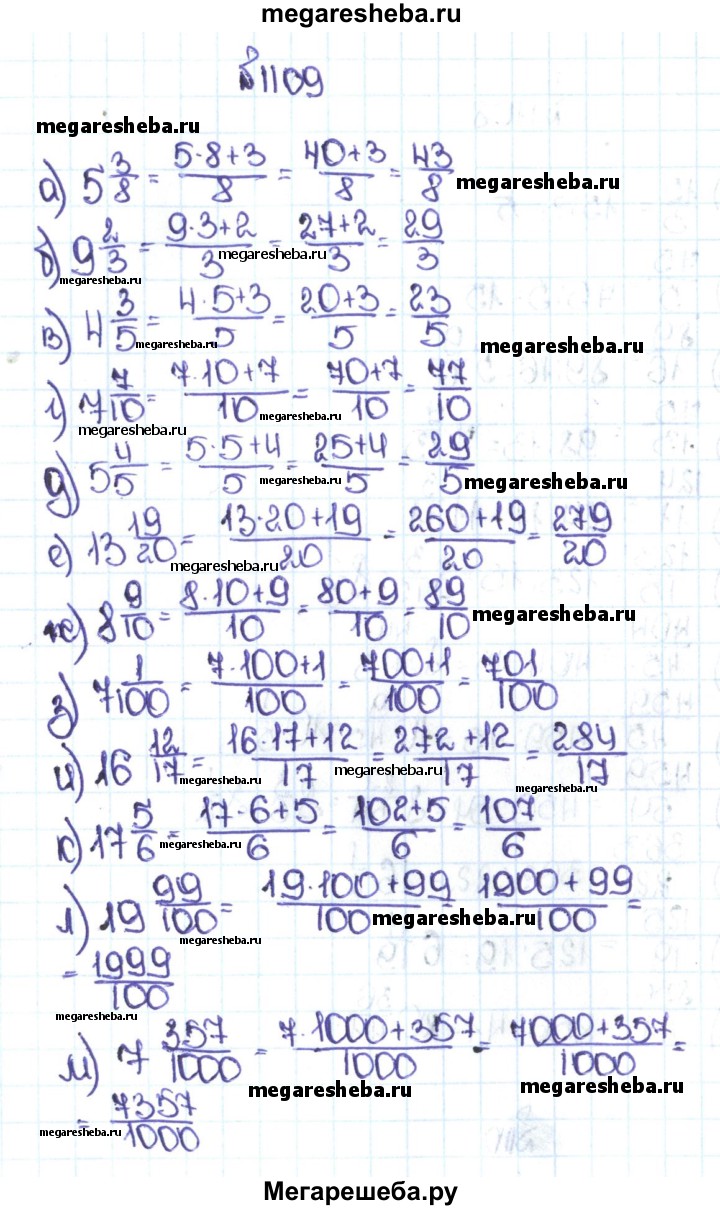 megaresheba.ru
№1109
megaresheba.ru
а) 5 3/8 = (5·8+3)/8 = (40+3)/8 = 43/8
megaresheba.ru
б) 9 2/3 = (9·3+2)/3 = (27+2)/3 = 29/3
megaresheba.ru
megaresheba.ru
в) 4 3/5 = (4·5+3)/5 = (20+3)/5 = 23/5
megaresheba.ru
megaresheba.ru
г) 7 7/10 = (7·10+7)/10 = (70+7)/10 = 77/10
megaresheba.ru
megaresheba.ru
д) 5 4/5 = (5·5+4)/5 = (25+4)/5 = 29/5
megaresheba.ru
megaresheba.ru
е) 13 19/20 = (13·20+19)/20 = (260+19)/20 = 279/20
megaresheba.ru
megaresheba.ru
ж) 8 9/10 = (8·10+9)/10 = (80+9)/10 = 89/10
megaresheba.ru
з) 7 1/100 = (7·100+1)/100 = (700+1)/100 = 701/100
и) 16 12/17 = (16·17+12)/17 = (272+12)/17 = 284/17
megaresheba.ru
megaresheba.ru
megaresheba.ru
к) 17 5/6 = (17·6+5)/6 = (102+5)/6 = 107/6
megaresheba.ru
л) 19 99/100 = (19·100+99)/100 = (1900+99)/100 =
megaresheba.ru
megaresheba.ru
= 1999/100
megaresheba.ru
м) 7 357/1000 = (7·1000+357)/1000 = (7000+357)/1000 =
megaresheba.ru
megaresheba.ru
= 7357/1000
megaresheba.ru
Мегарешеба.ру